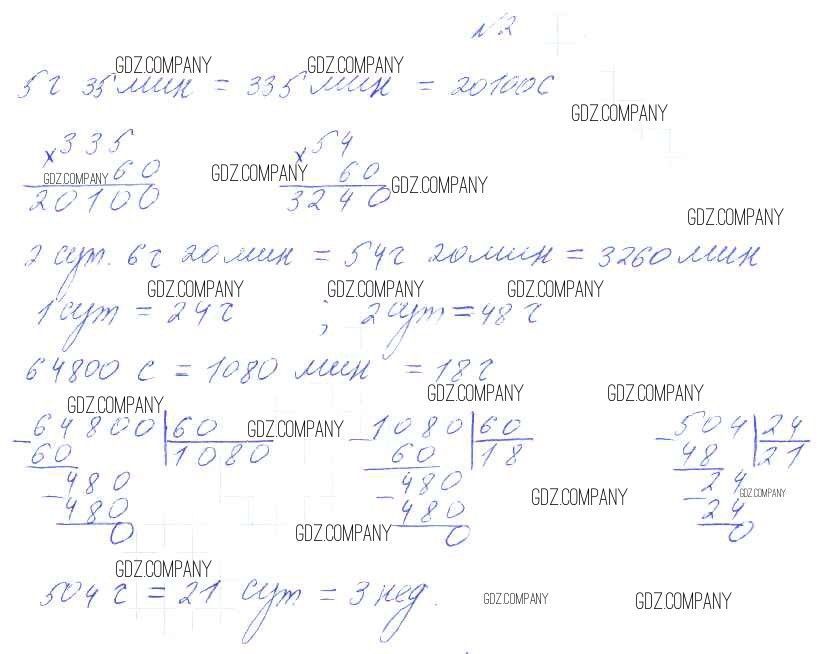 №2
GDZ.COMPANY GDZ.COMPANY
5ч 35 мин = 335 мин = 20100с
GDZ.COMPANY
× 335 × 54
GDZ.COMPANY 60 GDZ.COMPANY 60 GDZ.COMPANY
20100 3240
GDZ.COMPANY
2 сут. 6ч 20 мин = 54ч 20 мин = 3260 мин
GDZ.COMPANY GDZ.COMPANY GDZ.COMPANY
1 сут = 24ч ; 2 сут = 48ч
64800 с = 1080 мин = 18ч
GDZ.COMPANY GDZ.COMPANY GDZ.COMPANY
− 64800 | 60 GDZ.COMPANY − 1080 | 60 − 504 | 24
60 | 1080 60 | 18 48 | 21
− 480 − 480 − 24
GDZ.COMPANY GDZ.COMPANY
480 480 24
0 GDZ.COMPANY 0 0
GDZ.COMPANY
504 ч = 21 сут = 3 нед.
GDZ.COMPANY GDZ.COMPANY